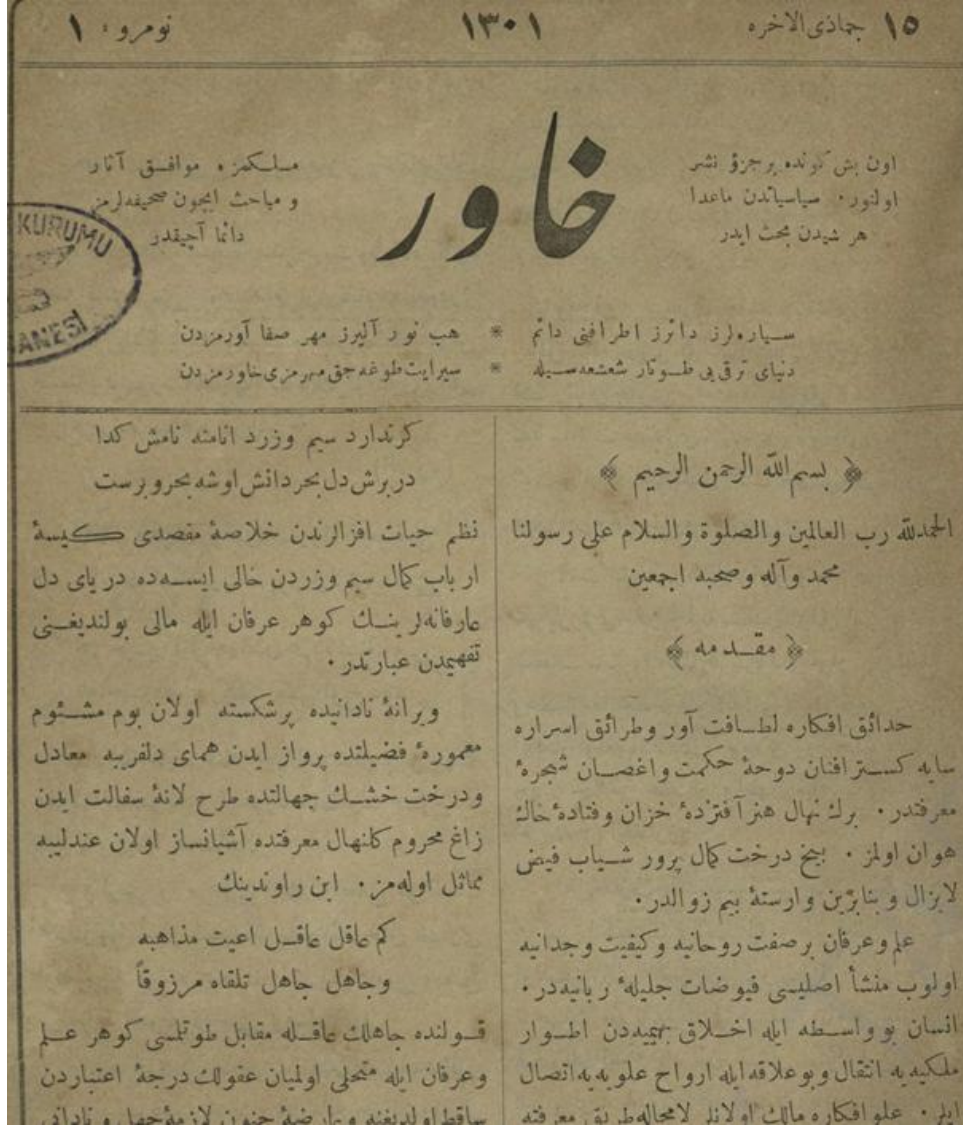 ١٥ جماذى الاخره
١٣٠١
نومرو ٠ ١
اون بش كونده برجزؤ نشر
اولنور ٠ سياسياتدن ماعدا
هر شيدن بحث ايدر
خاور
مسلكمزه موافق آثار
و مباحث ايچون صحيفه‌لرمز
دائما آچيقدر
KURUMU
ANESİ
سياره‌لرز دائرز اطرافنى دائم * هب نور آليرز مهر صفا آورمزدن
دنياى ترقى يى طوتار شعشعه‌سيله * سيرايت طوغه‌جق مهرمزى خاورمزدن
﴿ بسم الله الرحمن الرحيم ﴾
الحمدلله رب العالمين والصلوة والسلام على رسولنا
محمد وآله وصحبه اجمعين
﴿ مقدمه ﴾
حدائق افكاره لطافت آور وطرائق اسراره
سايه كستر افنان دوحۀ حكمت واغصان شجرۀ
معرفتدر ٠ برك نهال هنر آفتزدۀ خزان وفتادۀ خاك
هوان اولمز ٠ بيخ درخت كمال پرور شياب فيض
لايزال و بنابرين وارستۀ بيم زوالدر ٠
علم وعرفان بر صفت روحانيه وكيفيت وجدانيه
اولوب منشأ اصليسى فيوضات جليلۀ ربانيه‌در ٠
انسان بو واسطه ايله اخلاق بهيميه‌دن اطوار
ملكيه‌يه انتقال وبو علاقه ايله ارواح علويه‌يه اتصال
ايلر ٠ علو افكاره مالك اولانلر لامحاله طريق معرفته
كرندارد سيم وزرد انامنه نامش كدا
دربرش دل بحر دانش اوشه بحروبرست
نظم حيات افزالرندن خلاصۀ مقصدى كيسۀ
ارباب كمال سيم وزردن خالى ايسه‌ده درياى دل
عارفانه‌لرينك كوهر عرفان ايله مالى بولنديغنى
تفهيمدن عبارتدر ٠
ويرانۀ نادانيده پرشكسته اولان بوم مشئوم
معمورۀ فضيلتده پرواز ايدن هماى دلفريبه معادل
ودرخت خشك جهالتده طرح لانۀ سفالت ايدن
زاغ محروم كلنهال معرفتده آشيانساز اولان عندليبه
مماثل اوله‌مز ٠ ابن راوندينك
كم عاقل عاقل اعيت مذاهبه
وجاهل جاهل تلقاه مرزوقاً
قولنده جاهلك عاقله مقابل طوتلمسى كوهر علم
وعرفان ايله متحلى اولميان عقولك درجۀ اعتباردن
ساقط اولديغنه و عارضۀ جنون لازمۀ جهل و نادانى